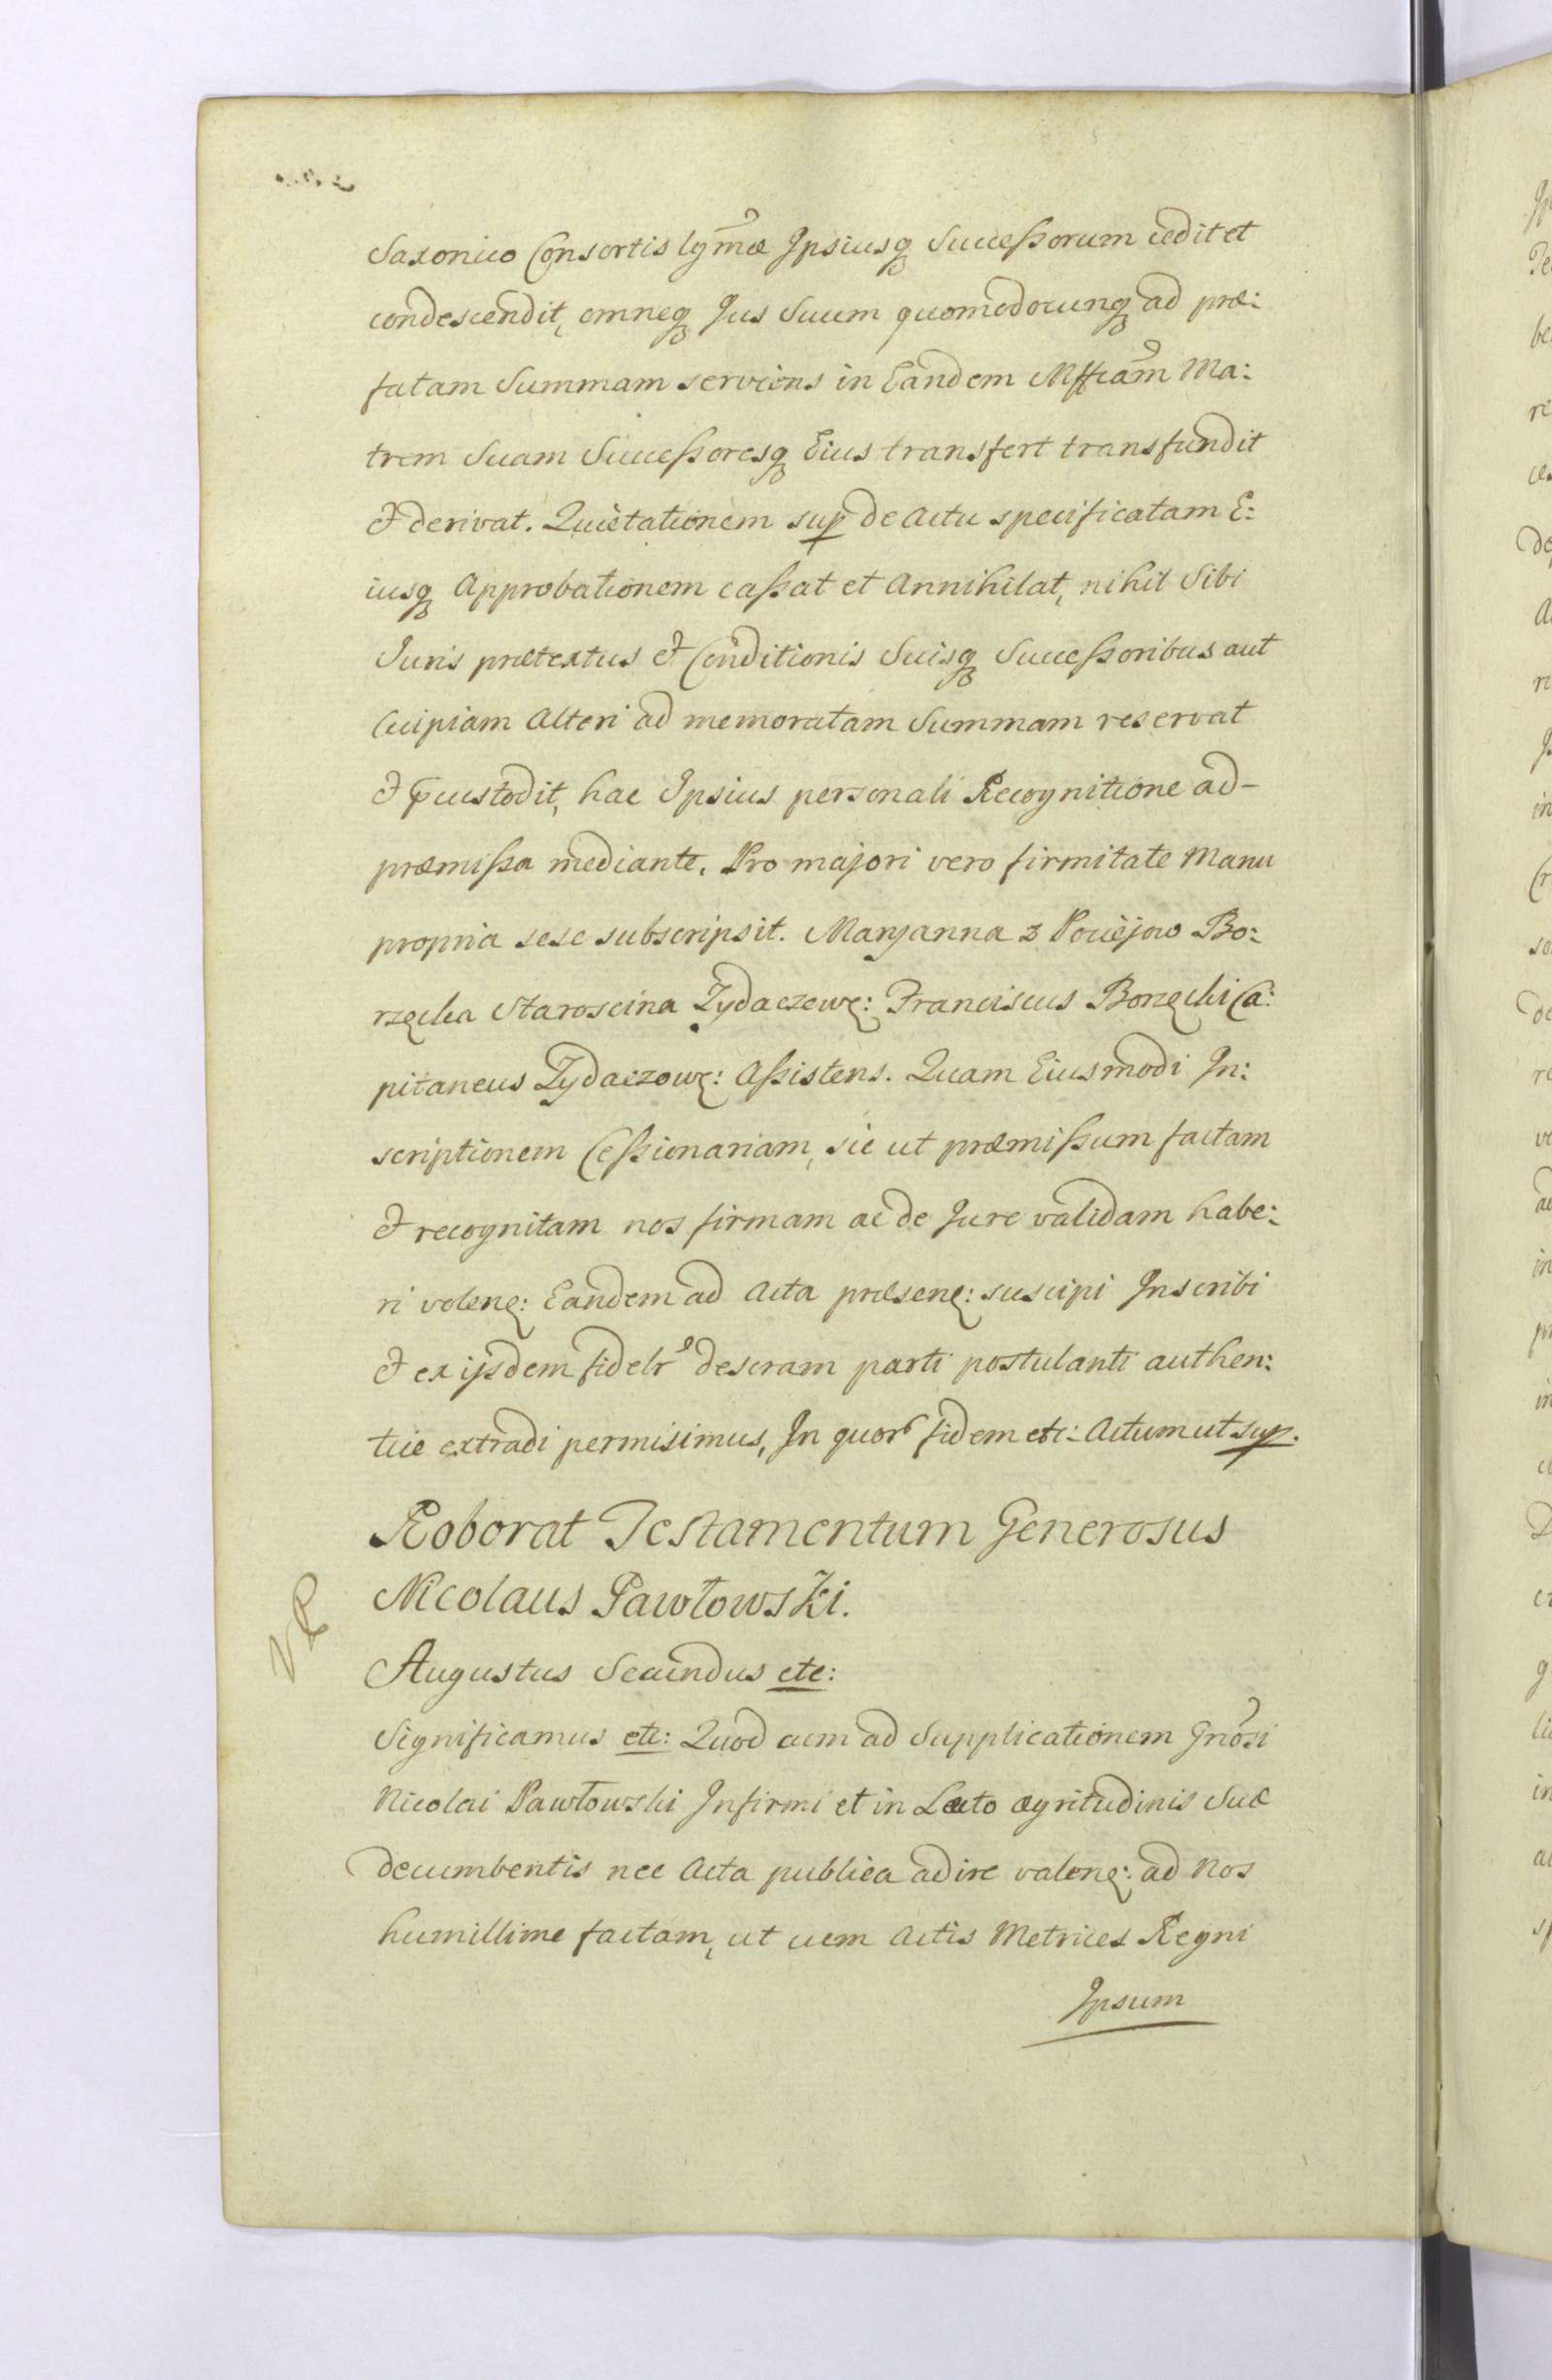 Saxonico Consortis lgṁæ Ipsiusq Successorum cedit et
condescendit, omneq Jus Suum quomodocunq ad præ:
fatam Summam serviens in Eandem Mffcam̃ Ma:
trem Suam Successoresq Eius transfert transfundit
& derivat. Quietationem sup de actu specificatam E:
iusq Approbationem cassat et Annihilat, nihil Sibi
Juris prætextus & Conditionis Suisq Successoribus aut
Cuipiam Alteri ad memoratam Summam reservat
& p̃custodit, hac Ipsius personali Recognitione ad-
præmissa mediante. Pro majori vero firmitate Manu
propria sese subscripsit. Maryanna z Pociėjow Bo:
rzęcka Staroscina Zydaczewę: Franciscus Borzęcki Ca:
pitaneus Zydaczowę: Assistens. Quam Eiusmodi In:
scriptionem Cessionariam, sic ut præmissum factam
& recognitam nos firmam ac de Jure validam habe:
ri volenę: Eandem ad Acta præsenę: suscipi Inscribi
& ex ijsdem fidelr descram parti postulanti authen:
tice extradi permisimus, In quor fidem etc: Actum ut sup.
Roborat Testamentum Generosus
Nicolaus Pawłowski.
VR
Augustus Secundus etc:
Significamus etc: Quod cum ad Supplicationem Gnõsi
Nicolai Pawłowski Infirmi et in Lecto ægritudinis Suæ
decumbentis nec Acta publica adire valenę: ad Nos
humillime factam, ut cum Actis Metrices Regni
Ipsum